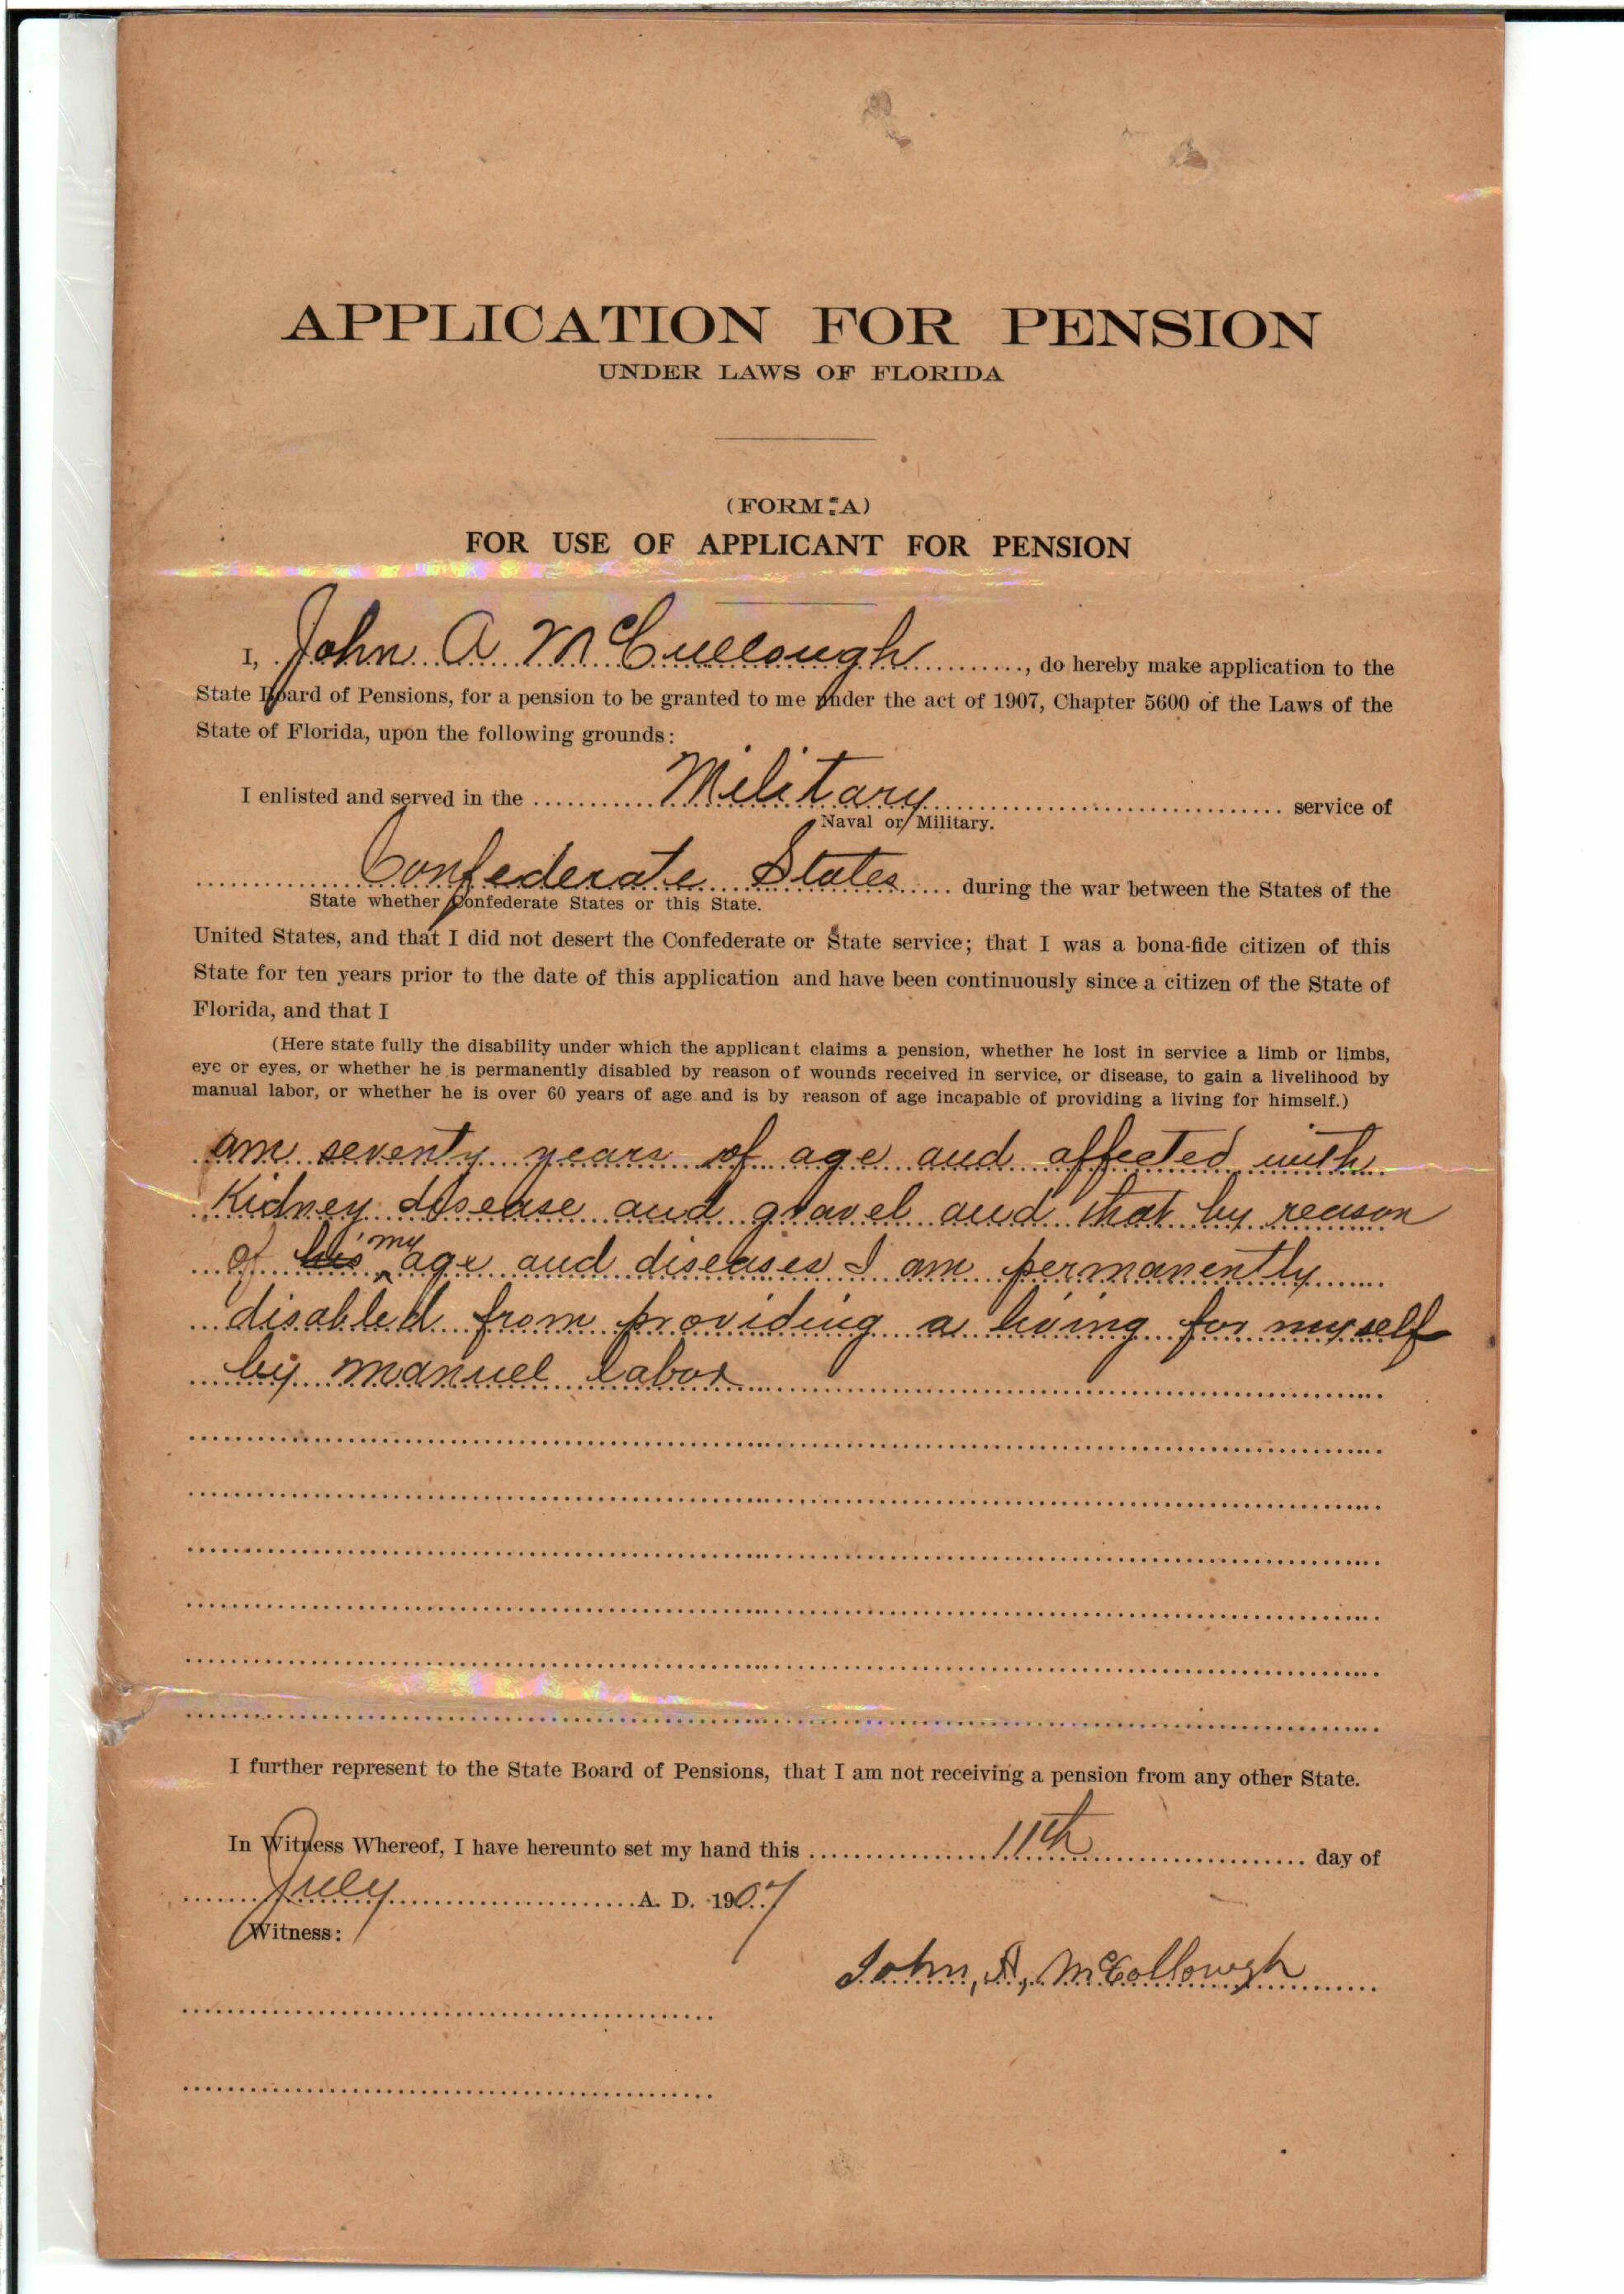 APPLICATION FOR PENSION
UNDER LAWS OF FLORIDA
(FORM A)
FOR USE OF APPLICANT FOR PENSION
I, John A McCullough, do hereby make application to the
State Board of Pensions, for a pension to be granted to me under the act of 1907, Chapter 5600 of the Laws of the
State of Florida, upon the following grounds:
I enlisted and served in the Military service of
Naval or Military.
Confederate States during the war between the States of the
State whether Confederate States or this State.
United States, and that I did not desert the Confederate or State service; that I was a bona-fide citizen of this
State for ten years prior to the date of this application and have been continuously since a citizen of the State of
Florida, and that I
(Here state fully the disability under which the applicant claims a pension, whether he lost in service a limb or limbs,
eye or eyes, or whether he is permanently disabled by reason of wounds received in service, or disease, to gain a livelihood by
manual labor, or whether he is over 60 years of age and is by reason of age incapable of providing a living for himself.)
am seventy years of age and affected with
Kidney disease and gravel and that by reason
of his my age and diseases I am permanently
disabled from providing a living for myself
by manuel labor
I further represent to the State Board of Pensions, that I am not receiving a pension from any other State.
In Witness Whereof, I have hereunto set my hand this 11th day of
July A. D. 1907
Witness:
John, A, McCollough